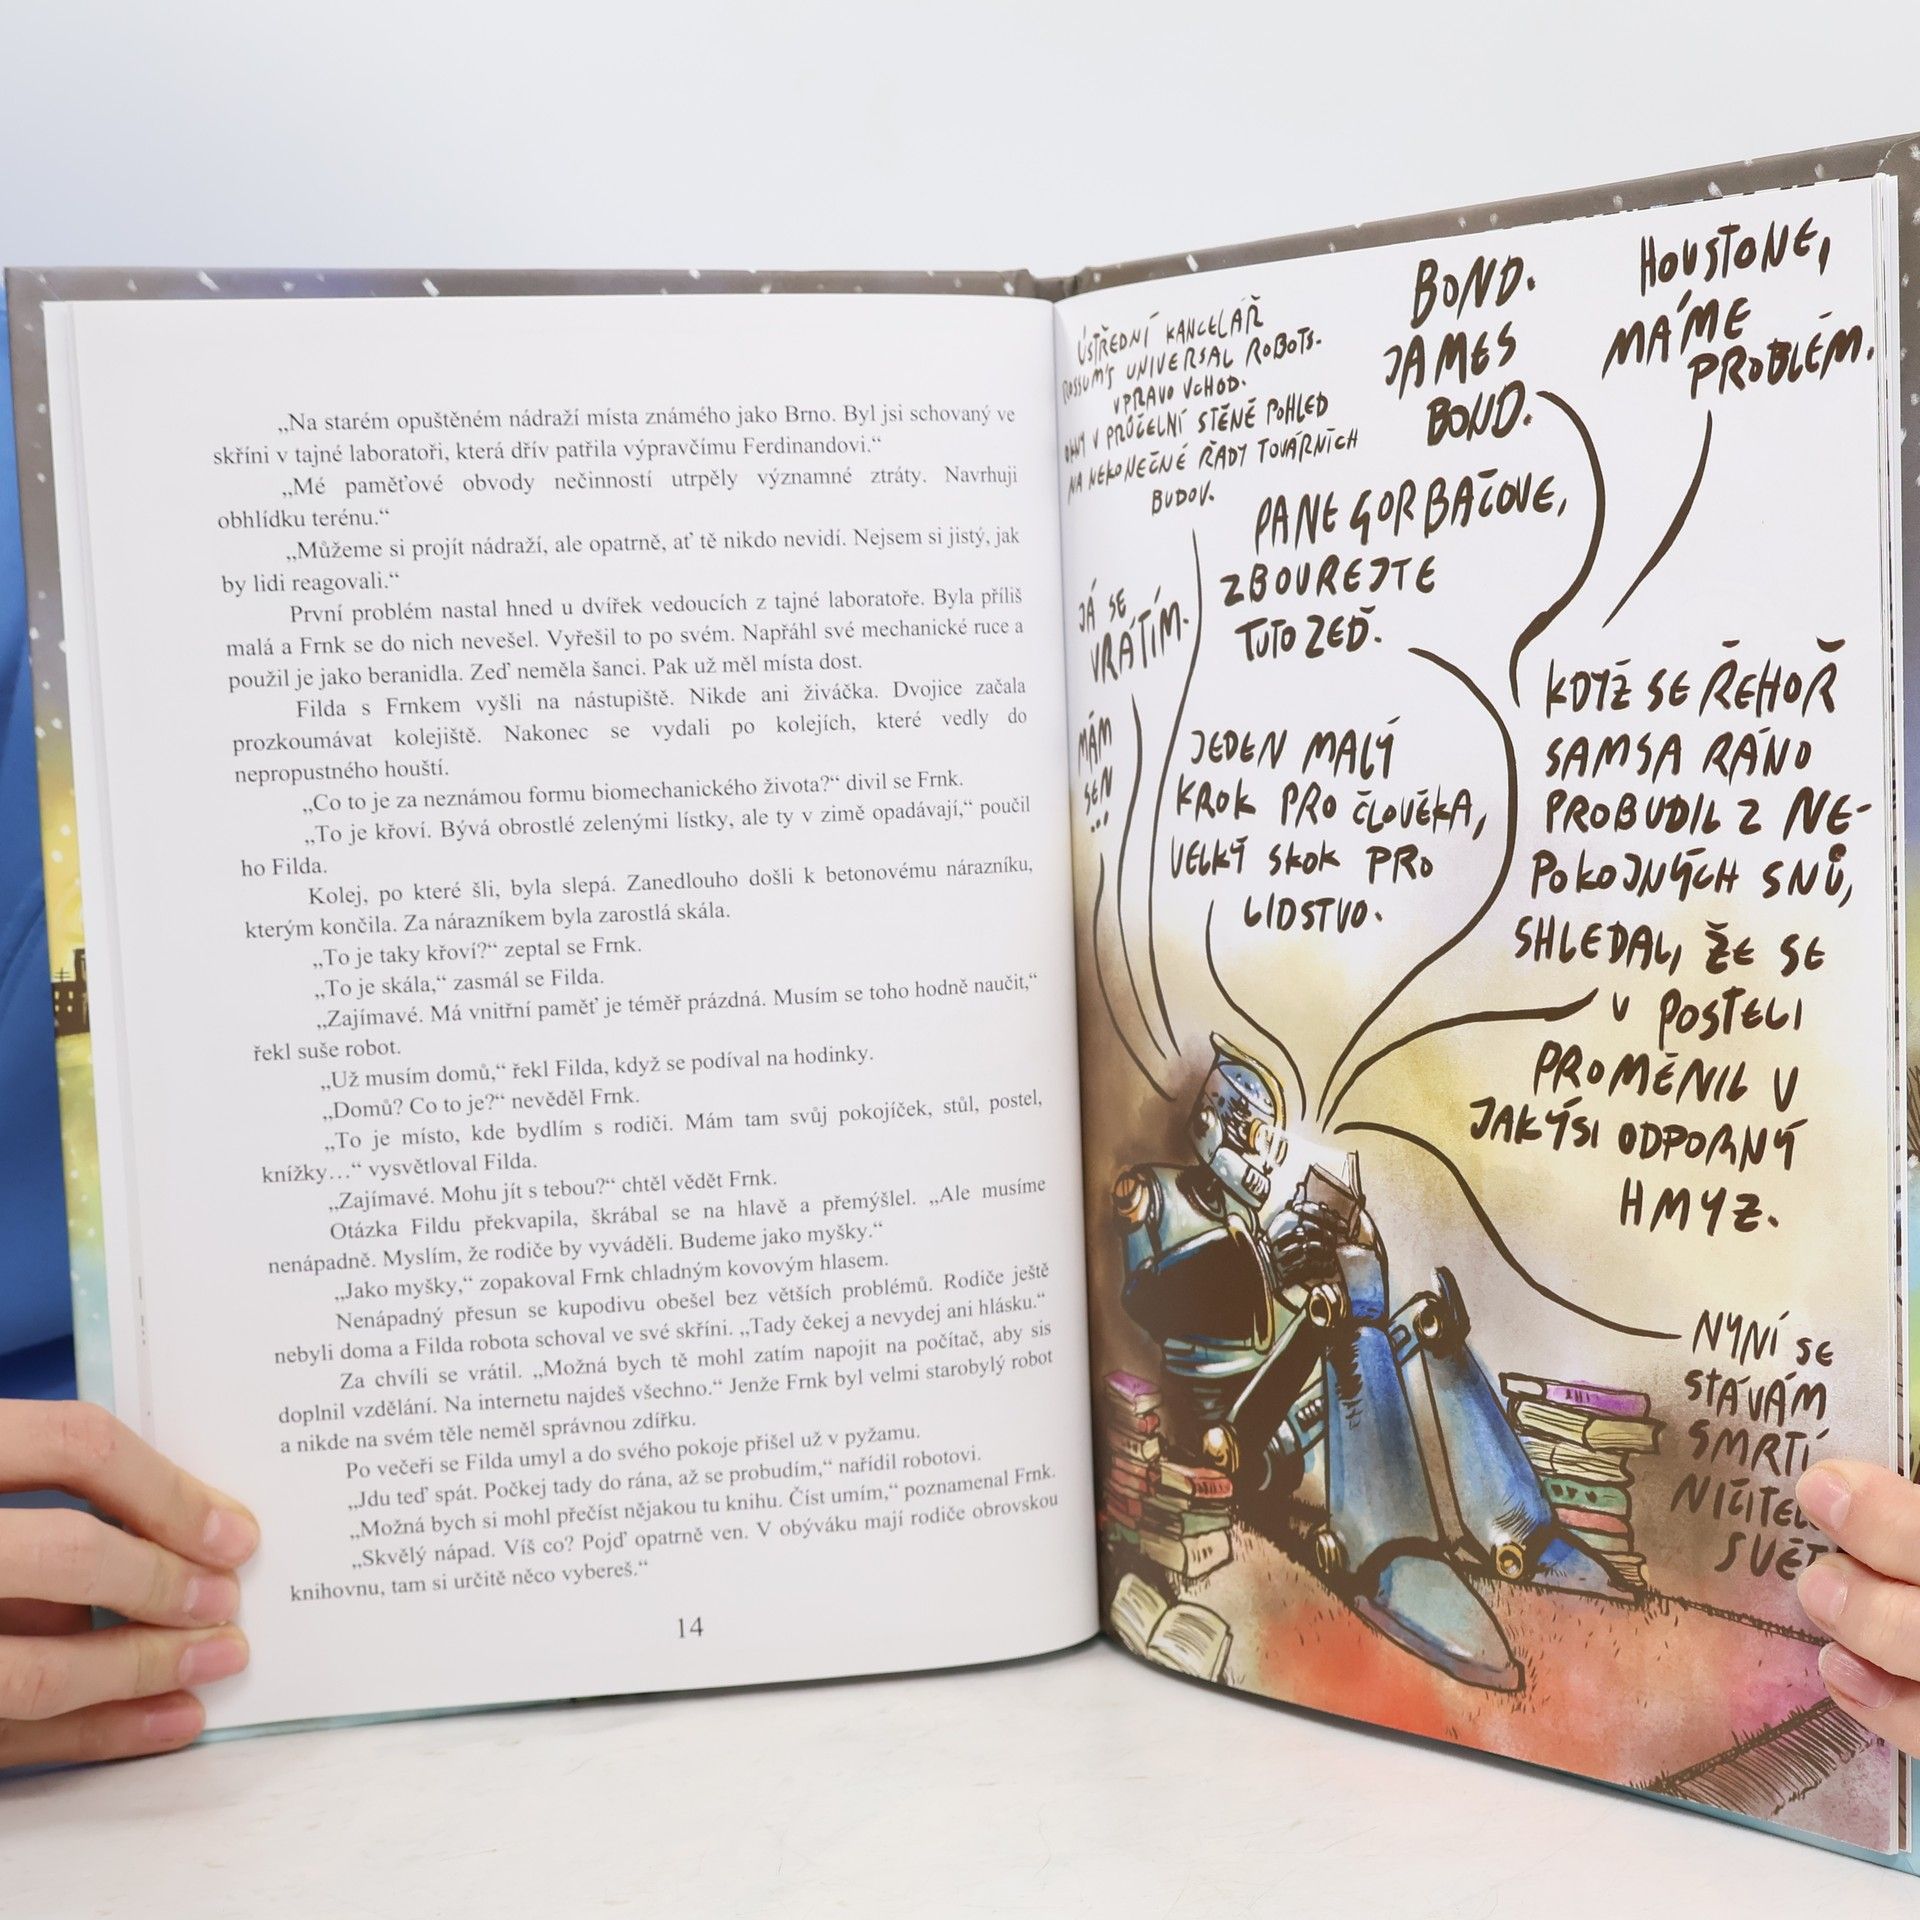 „Na starém opuštěném nádraží místa známého jako Brno. Byl jsi schovaný ve
skříni v tajné laboratoři, která dřív patřila výpravčímu Ferdinandovi.“
„Mé paměťové obvody nečinností utrpěly významné ztráty. Navrhuji
obhlídku terénu.“
„Můžeme si projít nádraží, ale opatrně, ať tě nikdo nevidí. Nejsem si jistý, jak
by lidi reagovali.“
První problém nastal hned u dvířek vedoucích z tajné laboratoře. Byla příliš
malá a Frnk se do nich nevešel. Vyřešil to po svém. Napřáhl své mechanické ruce a
použil je jako beranidla. Zeď neměla šanci. Pak už měl místa dost.
Filda s Frnkem vyšli na nástupiště. Nikde ani živáčka. Dvojice začala
prozkoumávat kolejiště. Nakonec se vydali po kolejích, které vedly do
nepropustného houští.
„Co to je za neznámou formu biomechanického života?“ divil se Frnk.
„To je křoví. Bývá obrostlé zelenými lístky, ale ty v zimě opadávají,“ poučil
ho Filda.
Kolej, po které šli, byla slepá. Zanedlouho došli k betonovému nárazníku,
kterým končila. Za nárazníkem byla zarostlá skála.
„To je taky křoví?“ zeptal se Frnk.
„To je skála,“ zasmál se Filda.
„Zajímavé. Má vnitřní paměť je téměř prázdná. Musím se toho hodně naučit,“
řekl suše robot.
„Už musím domů,“ řekl Filda, když se podíval na hodinky.
„Domů? Co to je?“ nevěděl Frnk.
„To je místo, kde bydlím s rodiči. Mám tam svůj pokojíček, stůl, postel,
knížky…“ vysvětloval Filda.
„Zajímavé. Mohu jít s tebou?“ chtěl vědět Frnk.
Otázka Fildu překvapila, škrábal se na hlavě a přemýšlel. „Ale musíme
nenápadně. Myslím, že rodiče by vyváděli. Budeme jako myšky.“
„Jako myšky,“ zopakoval Frnk chladným kovovým hlasem.
Nenápadný přesun se kupodivu obešel bez větších problémů. Rodiče ještě
nebyli doma a Filda robota schoval ve své skříni. „Tady čekej a nevydej ani hlásku.“
Za chvíli se vrátil. „Možná bych tě mohl zatím napojit na počítač, aby sis
doplnil vzdělání. Na internetu najdeš všechno.“ Jenže Frnk byl velmi starobylý robot
a nikde na svém těle neměl správnou zdířku.
Po večeři se Filda umyl a do svého pokoje přišel už v pyžamu.
„Jdu teď spát. Počkej tady do rána, až se probudím,“ nařídil robotovi.
„Možná bych si mohl přečíst nějakou tu knihu. Číst umím,“ poznamenal Frnk.
„Skvělý nápad. Víš co? Pojď opatrně ven. V obýváku mají rodiče obrovskou
knihovnu, tam si určitě něco vybereš.“
14
ÚSTŘEDNÍ KANCELÁŘ
ROSSUM'S UNIVERSAL ROBOTS.
VPRAVO VCHOD.
OKNY V PRŮČELNÍ STĚNĚ POHLED
NA NEKONEČNÉ ŘADY TOVÁRNÍCH
BUDOV.
BOND.
JAMES
BOND.
HOUSTONE,
MÁME
PROBLÉM.
PANE GORBAČOVE,
ZBOUREJTE
TUTO ZEĎ.
JÁ SE
VRÁTÍM.
MÁM
SEN
...
JEDEN MALÝ
KROK PRO ČLOVĚKA,
VELKÝ SKOK PRO
LIDSTVO.
KDYŽ SE ŘEHOŘ
SAMSA RÁNO
PROBUDIL Z NE-
POKOJNÝCH SNŮ,
SHLEDAL, ŽE SE
V POSTELI
PROMĚNIL V
JAKÝSI ODPORNÝ
HMYZ.
NYNÍ SE
STÁVÁM
SMRTÍ